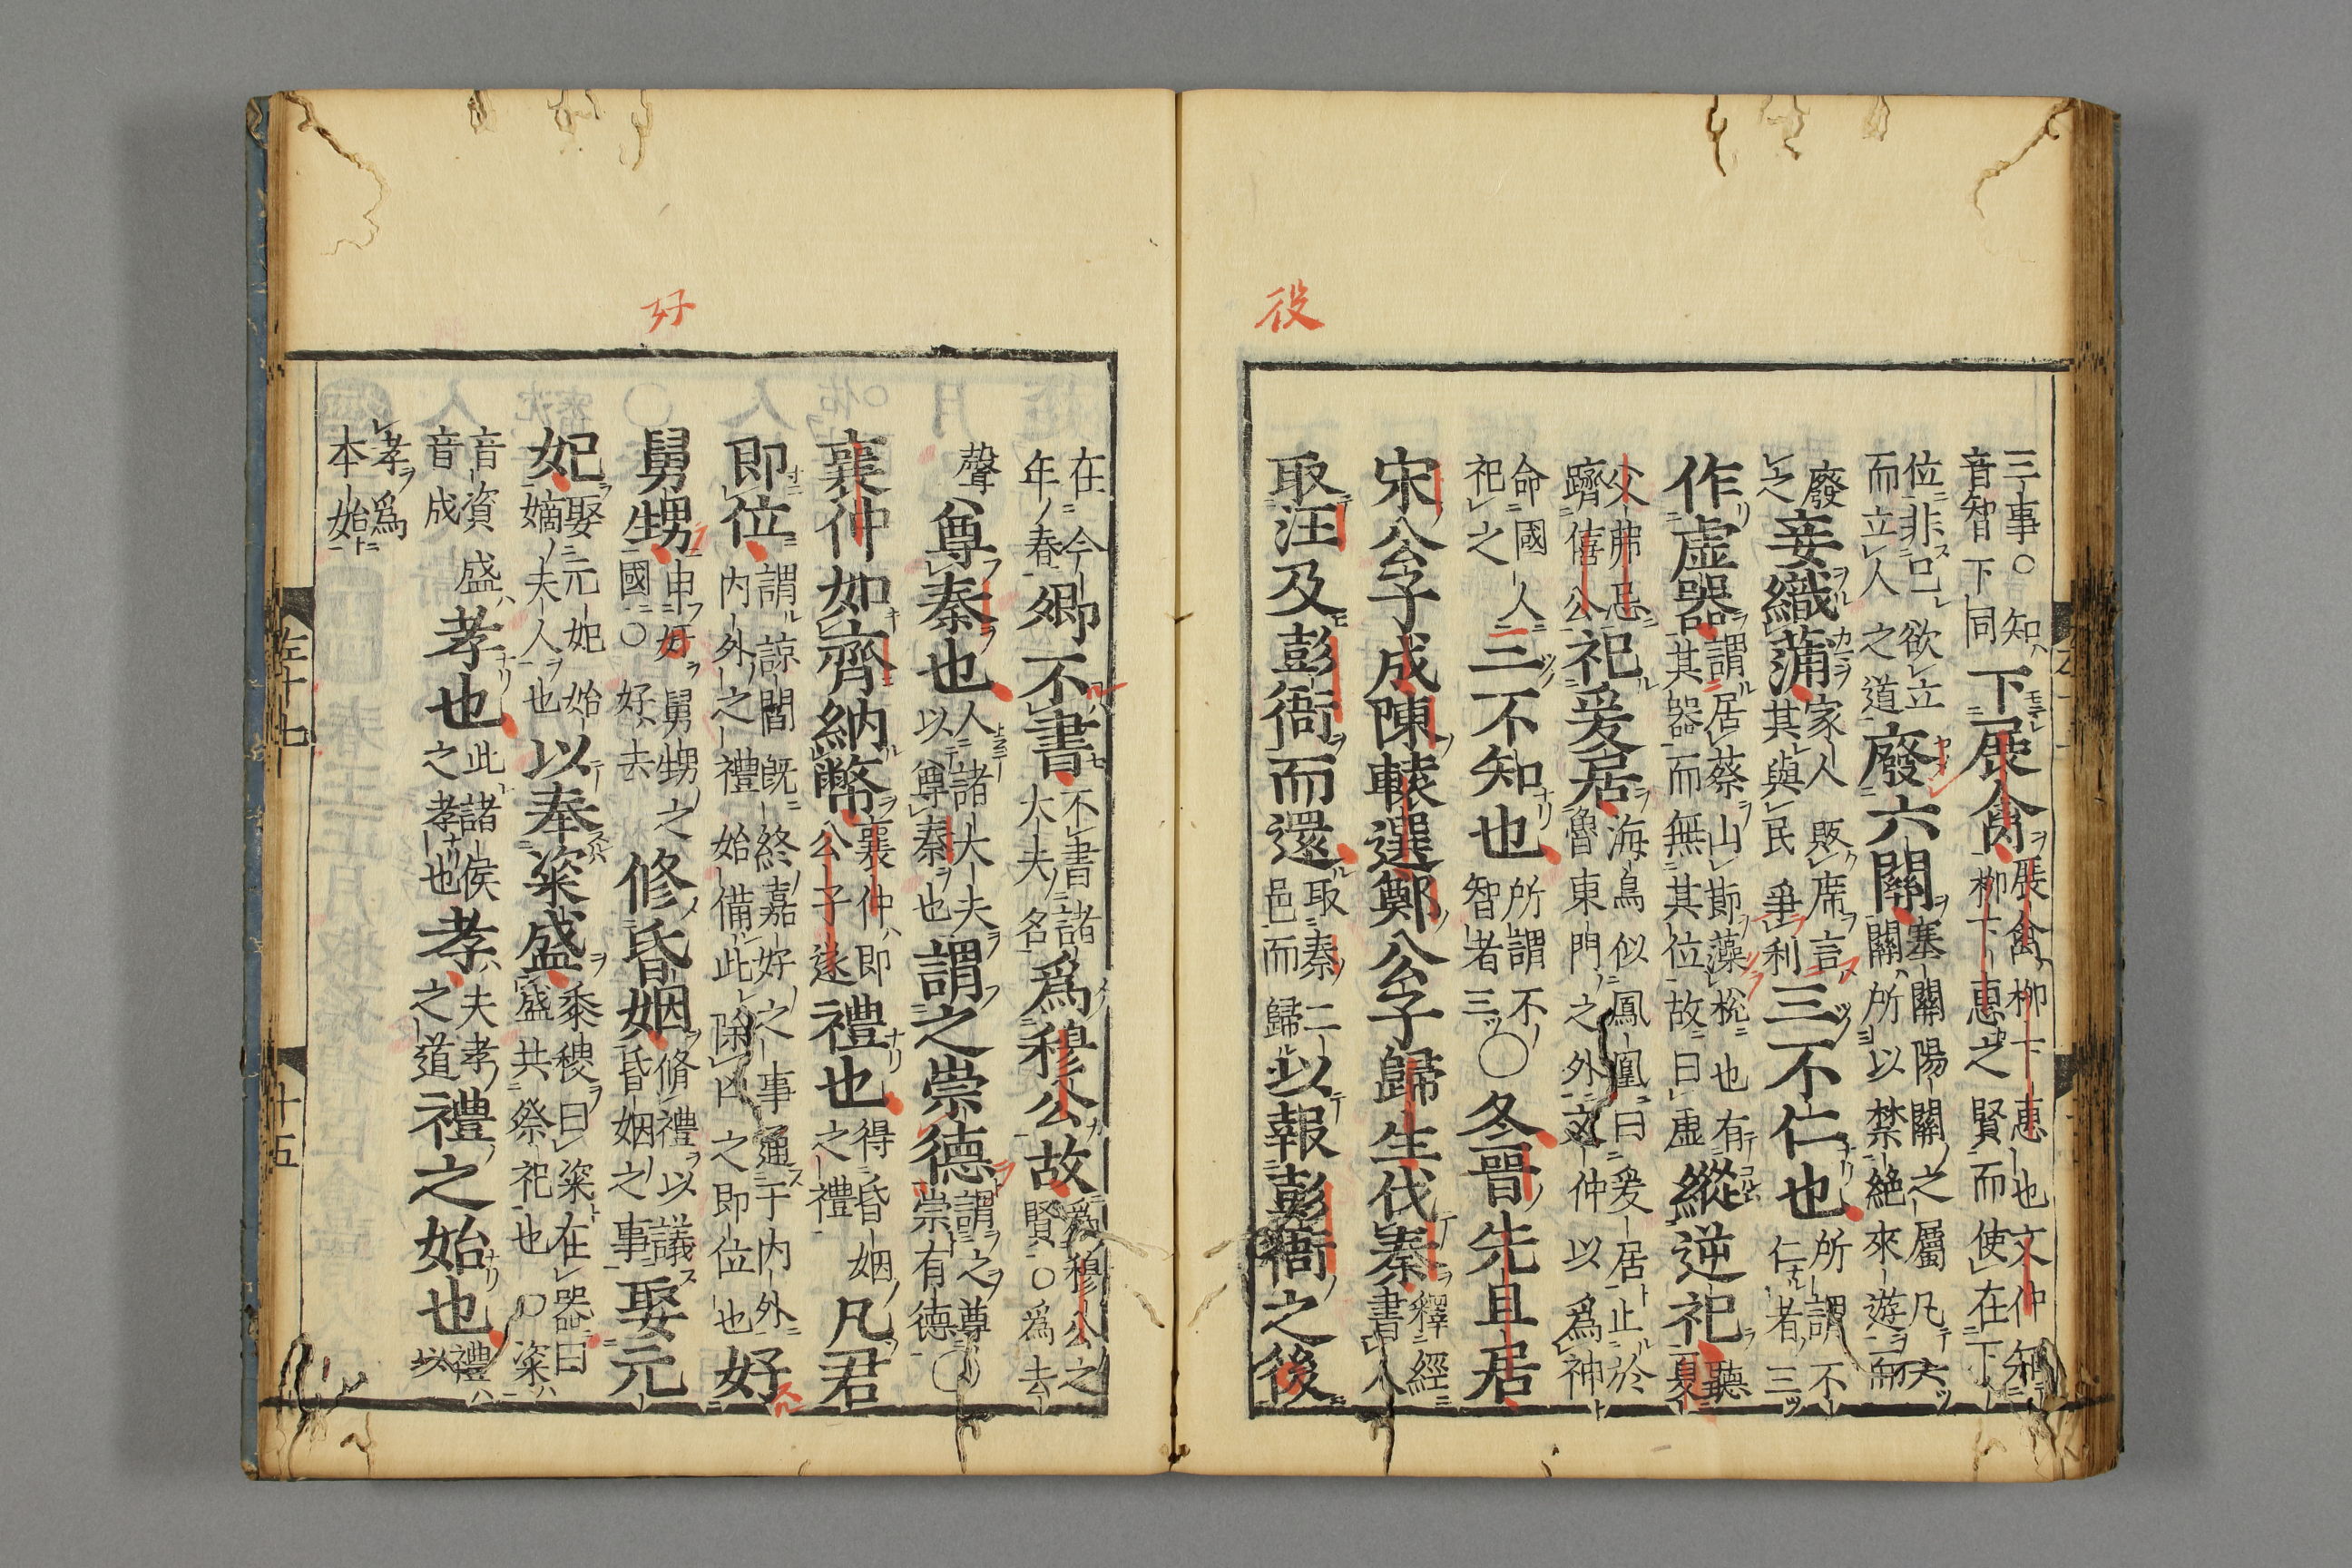 役
三事○知音智下同下展禽展禽柳下惠也文仲知柳下惠之賢而使在下
位非已欲立而立人之道廢六關塞關陽關之屬凡六關所以禁絶來遊而
廢之妾織蒲家人販席言其與民爭利三不仁也所謂不仁者三
作虛器謂居蔡山節藻梲也有其器而無其位故曰虛縱逆祀聽夏
父弗忌躋僖公祀爰居海鳥似鳳凰曰爰居止於魯東門之外文仲以爲神
命國人祀之三不知也所謂不智者三○冬晉先且居
宋公子成陳轅選鄭公子歸生伐秦釋經書人
取汪及彭衙而還取秦二邑而歸以報彭衙之後
好
在今年春卿不書不書諸大夫名爲穆公故爲穆公之賢○爲去
聲尊秦也人諸大夫以尊秦也謂之崇德謂之尊崇有德○
襄仲如齊納幣襄仲即公子遂禮也得昏姻之禮凡君
即位謂諒闇既終嘉好之事通于内外内外之禮始備此除凶之即位也好
舅甥申好舅甥之國○好去修昏姻脩禮以議昏姻之事娶元
妃娶元妃始嫡夫人也以奉粢盛黍稷曰粢在器曰盛共祭祀也○粢
音資盛音成孝也此諸侯之孝也孝夫孝之道禮之始也禮以
孝爲本始
左十七
十五